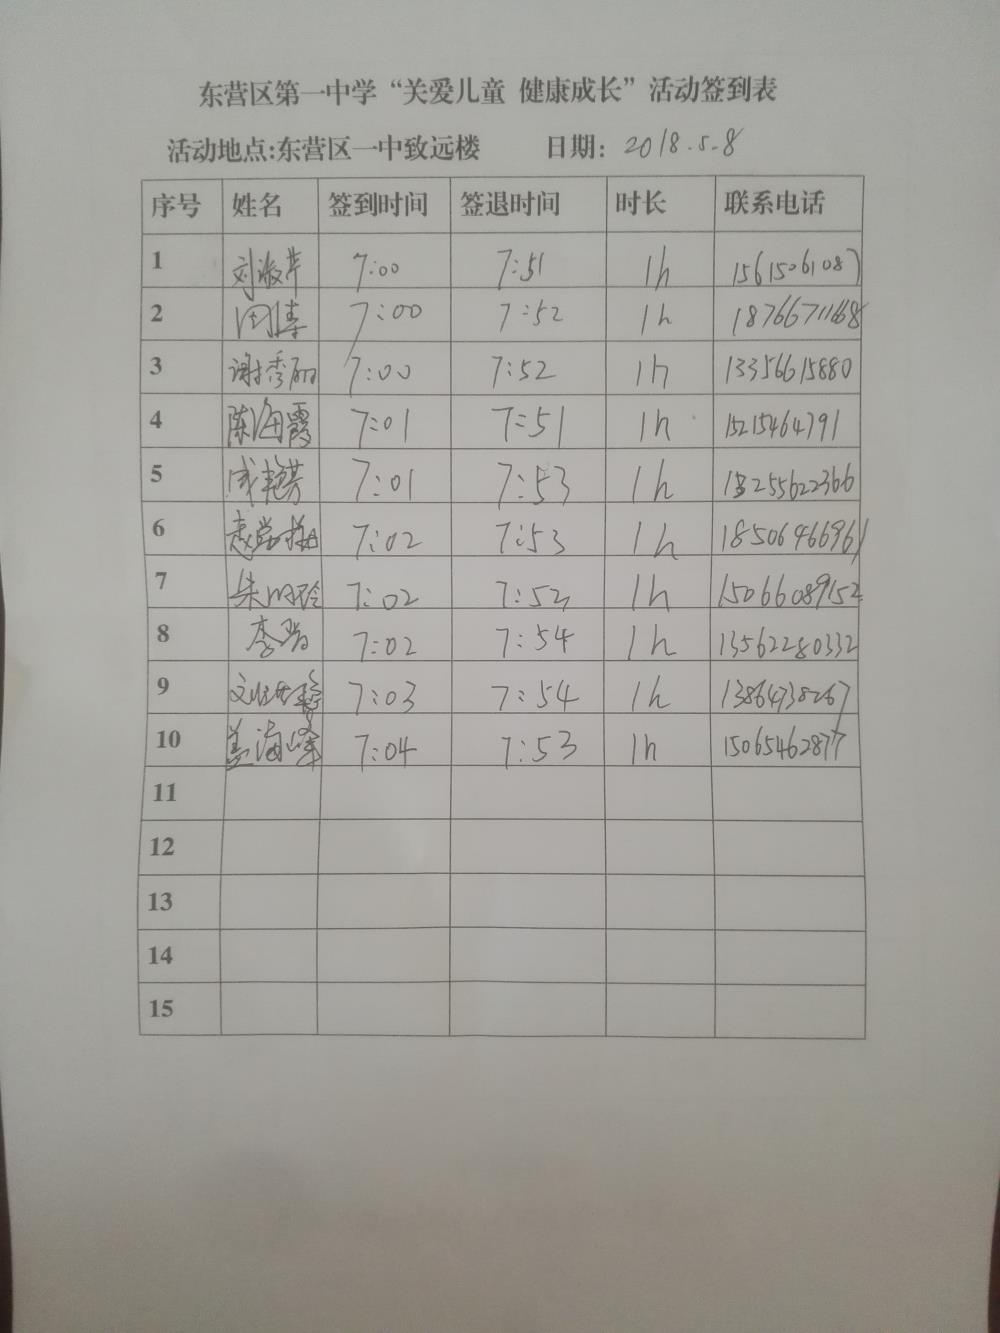 东营区第一中学“关爱儿童 健康成长”活动签到表
活动地点:东营区一中致远楼 日期: 2018.5.8
序号 姓名 签到时间 签退时间 时长 联系电话
1 刘淑芹 7:00 7:51 1h 15615061087
2 7:00 7:52 1h 18766711168
3 谢秀丽 7:00 7:52 1h 13356615880
4 陈海霞 7:01 7:51 1h 15215464791
5 成艳芳 7:01 7:53 1h
6 7:02 7:53 1h 18506466961
7 朱明玲 7:02 7:52 1h 15066089152
8 李瑞 7:02 7:54 1h 13562280332
9 7:03 7:54 1h 13864738267
10 盖海峰 7:04 7:53 1h 15065462877
11
12
13
14
15